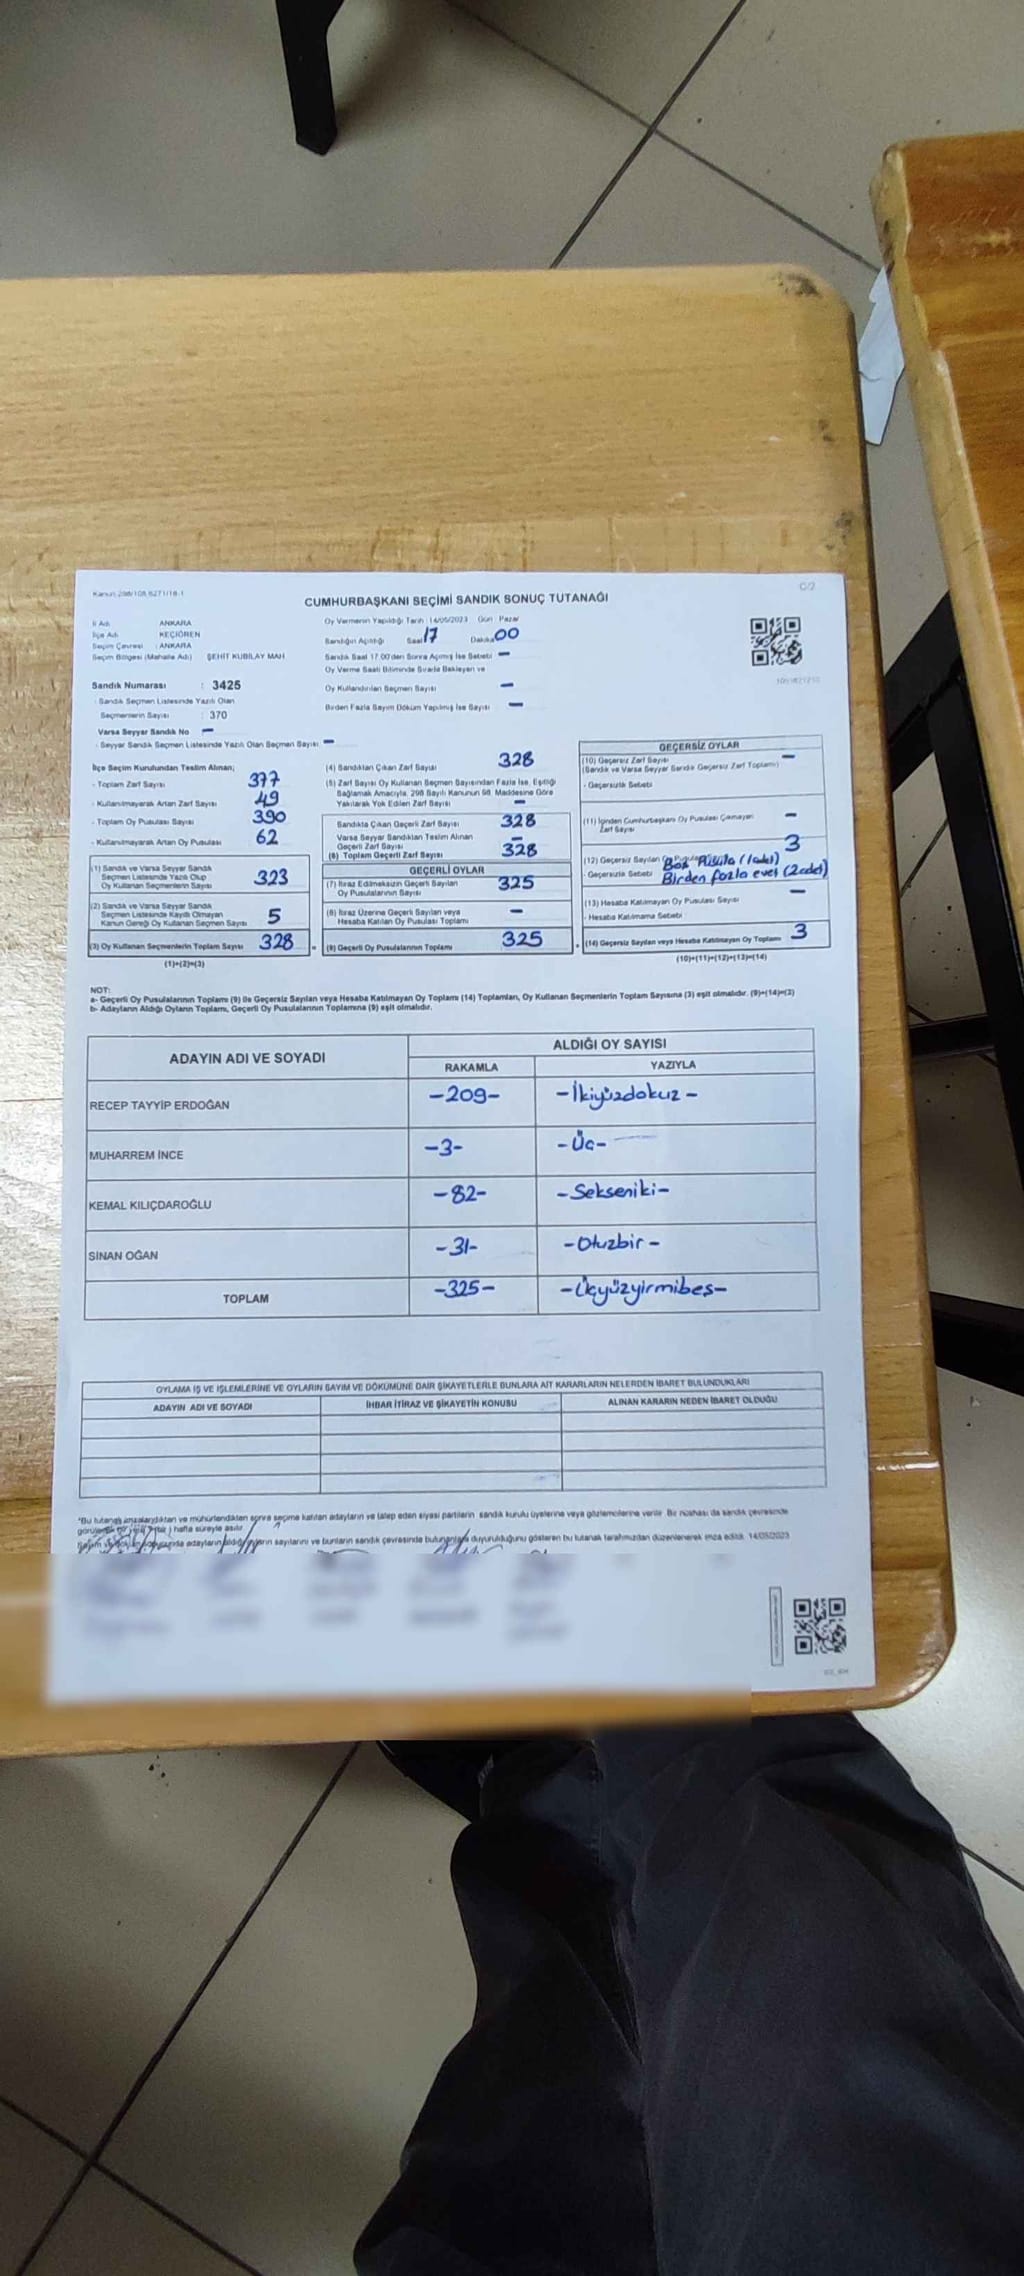 Kanun:298/108,6271/18-1
C/2
CUMHURBAŞKANI SEÇİMİ SANDIK SONUÇ TUTANAĞI
İl Adı ANKARA
İlçe Adı KEÇİÖREN
Seçim Çevresi : ANKARA
Seçim Bölgesi (Mahalle Adı) ŞEHİT KUBİLAY MAH
Sandık Numarası : 3425
Sandık Seçmen Listesinde Yazılı Olan
Seçmenlerin Sayısı : 370
Varsa Seyyar Sandık No -
- Seyyar Sandık Seçmen Listesinde Yazılı Olan Seçmen Sayısı -
Oy Vermenin Yapıldığı Tarih : 14/05/2023 Gün : Pazar
Sandığın Açıldığı Saat 17 Dakika 00
Sandık Saat 17.00'den Sonra Açılmış İse Sebebi -
Oy Verme Saati Bitiminde Sırada Bekleyen ve
Oy Kullandırılan Seçmen Sayısı -
Birden Fazla Sayım Döküm Yapılmış İse Sayısı -
İlçe Seçim Kurulundan Teslim Alınan;
- Toplam Zarf Sayısı 377
- Kullanılmayarak Artan Zarf Sayısı 49
- Toplam Oy Pusulası Sayısı 390
- Kullanılmayarak Artan Oy Pusulası 62
(1) Sandık ve Varsa Seyyar Sandık
Seçmen Listesinde Yazılı Olup
Oy Kullanan Seçmenlerin Sayısı 323
(2) Sandık ve Varsa Seyyar Sandık
Seçmen Listesinde Kayıtlı Olmayan
Kanun Gereği Oy Kullanan Seçmen Sayısı 5
(3) Oy Kullanan Seçmenlerin Toplam Sayısı 328
(1)+(2)=(3)
(4) Sandıktan Çıkan Zarf Sayısı 328
(5) Zarf Sayısı Oy Kullanan Seçmen Sayısından Fazla İse, Eşitliği
Sağlamak Amacıyla, 298 Sayılı Kanunun 98. Maddesine Göre
Yakılarak Yok Edilen Zarf Sayısı -
Sandıkta Çıkan Geçerli Zarf Sayısı 328
Varsa Seyyar Sandıktan Teslim Alınan
Geçerli Zarf Sayısı -
(6) Toplam Geçerli Zarf Sayısı 328
GEÇERLİ OYLAR
(7) İtiraz Edilmeksizin Geçerli Sayılan
Oy Pusulalarının Sayısı 325
(8) İtiraz Üzerine Geçerli Sayılan veya
Hesaba Katılan Oy Pusulası Toplamı -
(9) Geçerli Oy Pusulalarının Toplamı 325
GEÇERSİZ OYLAR
(10) Geçersiz Zarf Sayısı
(Sandık ve Varsa Seyyar Sandık Geçersiz Zarf Toplamı) -
- Geçersizlik Sebebi
(11) İçinden Cumhurbaşkanı Oy Pusulası Çıkmayan
Zarf Sayısı -
(12) Geçersiz Sayılan Oy Pusulası 3
- Geçersizlik Sebebi Boş Pusula (1 adet)
Birden fazla evet (2 adet)
(13) Hesaba Katılmayan Oy Pusulası Sayısı -
- Hesaba Katılmama Sebebi
(14) Geçersiz Sayılan veya Hesaba Katılmayan Oy Toplamı 3
(10)+(11)+(12)+(13)=(14)
NOT:
a- Geçerli Oy Pusulalarının Toplamı (9) ile Geçersiz Sayılan veya Hesaba Katılmayan Oy Toplamı (14) Toplamları, Oy Kullanan Seçmenlerin Toplam Sayısına (3) eşit olmalıdır. (9)+(14)=(3)
b- Adayların Aldığı Oyların Toplamı, Geçerli Oy Pusulalarının Toplamına (9) eşit olmalıdır.
ADAYIN ADI VE SOYADI
ALDIĞI OY SAYISI
RAKAMLA YAZIYLA
RECEP TAYYİP ERDOĞAN -209- -İkiyüzdokuz-
MUHARREM İNCE -3- -Üç-
KEMAL KILIÇDAROĞLU -82- -Sekseniki-
SİNAN OĞAN -31- -Otuzbir-
TOPLAM -325- -Üçyüzyirmibeş-
OYLAMA İŞ VE İŞLEMLERİNE VE OYLARIN SAYIM VE DÖKÜMÜNE DAİR ŞİKAYETLERLE BUNLARA AİT KARARLARIN NELERDEN İBARET BULUNDUKLARI
ADAYIN ADI VE SOYADI İHBAR İTİRAZ VE ŞİKAYETİN KONUSU ALINAN KARARIN NEDEN İBARET OLDUĞU
*Bu tutanak imzalandıktan ve mühürlendikten sonra seçime katılan adayların ve talep eden siyasi partilerin sandık kurulu üyelerine veya gözlemcilerine verilir. Bir nüshası da sandık çevresinde
görülecek bir yere 7 (bir) hafta süreyle asılır.
adayların aldığı oyların sayılarını ve bunların sandık çevresinde bulunanlara duyurulduğunu gösteren bu tutanak tarafımızdan düzenlenerek imza edildi. 14/05/2023